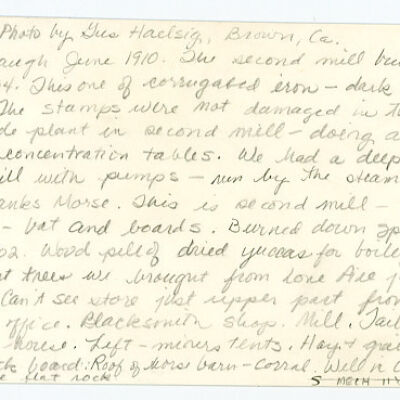 Photo by Gus Haelsig, Brown, Ca.
augh June 1910. The second mill bu
4. This one of corrugated iron – dark
The stamps were not damaged in t
de plant in second mill – doing a
concentration tables. We had a deep
ill with pumps – run by the steam
anks Morse. This is second mill –
– bat and boards. Burned down
02. Wood pile of dried yuccas for boile
t trees we brought from Lone Pine
Can't see store just upper part from
office. Blacksmith shop. Mill. Tail
house. Left – miners tents. Hay & grai
ck board: Roof of Morse barn – corral. Well in
e flat rock